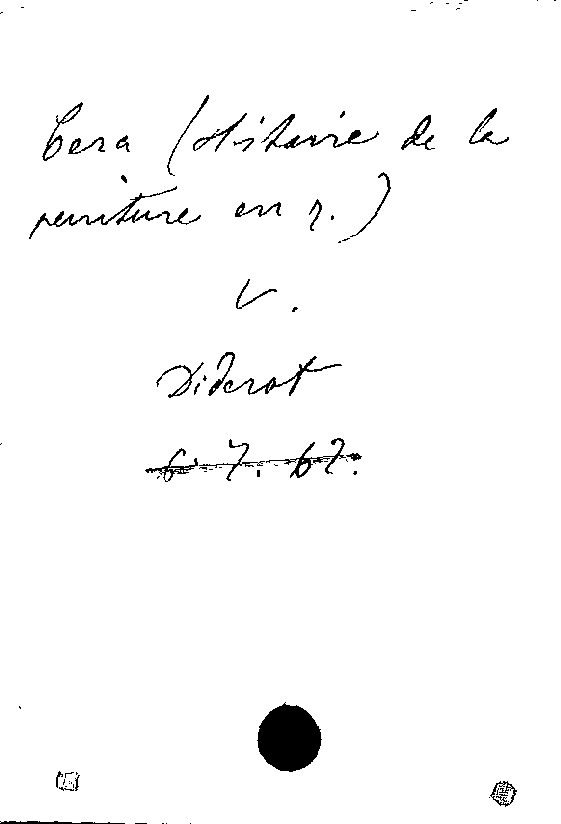 Cera (Histoire de la
peinture en
V.
Diderot
6. 7. 62.